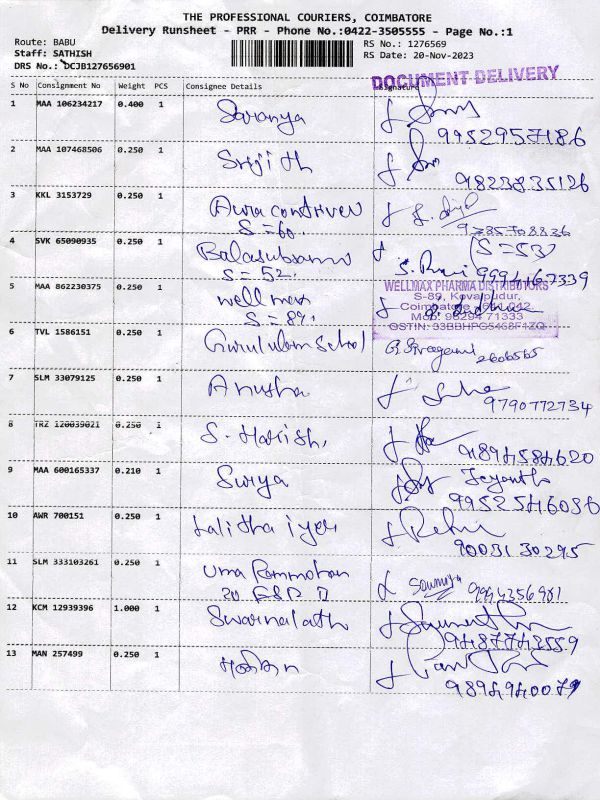 THE PROFESSIONAL COURIERS, COIMBATORE
Delivery Runsheet - PRR - Phone No.:0422-3505555 - Page No.:1
Route: BABU
Staff: SATHISH
DRS No.: DCJB127656901
RS No.: 1276569
RS Date: 20-Nov-2023
DOCUMENT DELIVERY
S No Consignment No Weight PCS Consignee Details Signature
1 MAA 106234217 0.400 1 Saranya
9952957186
2 MAA 107468506 0.250 1 Srijith
9823835126
3 KKL 3153729 0.250 1
S=60.
4 SVK 65090935 0.250 1 (S=53)
S=52.
5 MAA 862230375 0.250 1 well max
S=89.
WELLMAX PHARMA DISTRIBUTORS
S-89, Kovaipudur,
Coimbatore - 641 042.
6 TVL 1586151 0.250 1 Gurukulam School
2606565
7 SLM 33079125 0.250 1 Anusha
9790772734
8 TRZ 120039021 0.250 1 S. Harish,
9894584620
9 MAA 600165337 0.210 1 Surya Jeyanth
9952546036
10 AWR 700151 0.250 1 Lalitha iyer
90031 30295
11 SLM 333103261 0.250 1 Uma Rammohan
Sowmiya 9994356981
12 KCM 12939396 1.000 1 Swarnalatha
9487743559
13 MAN 257499 0.250 1
9894940079